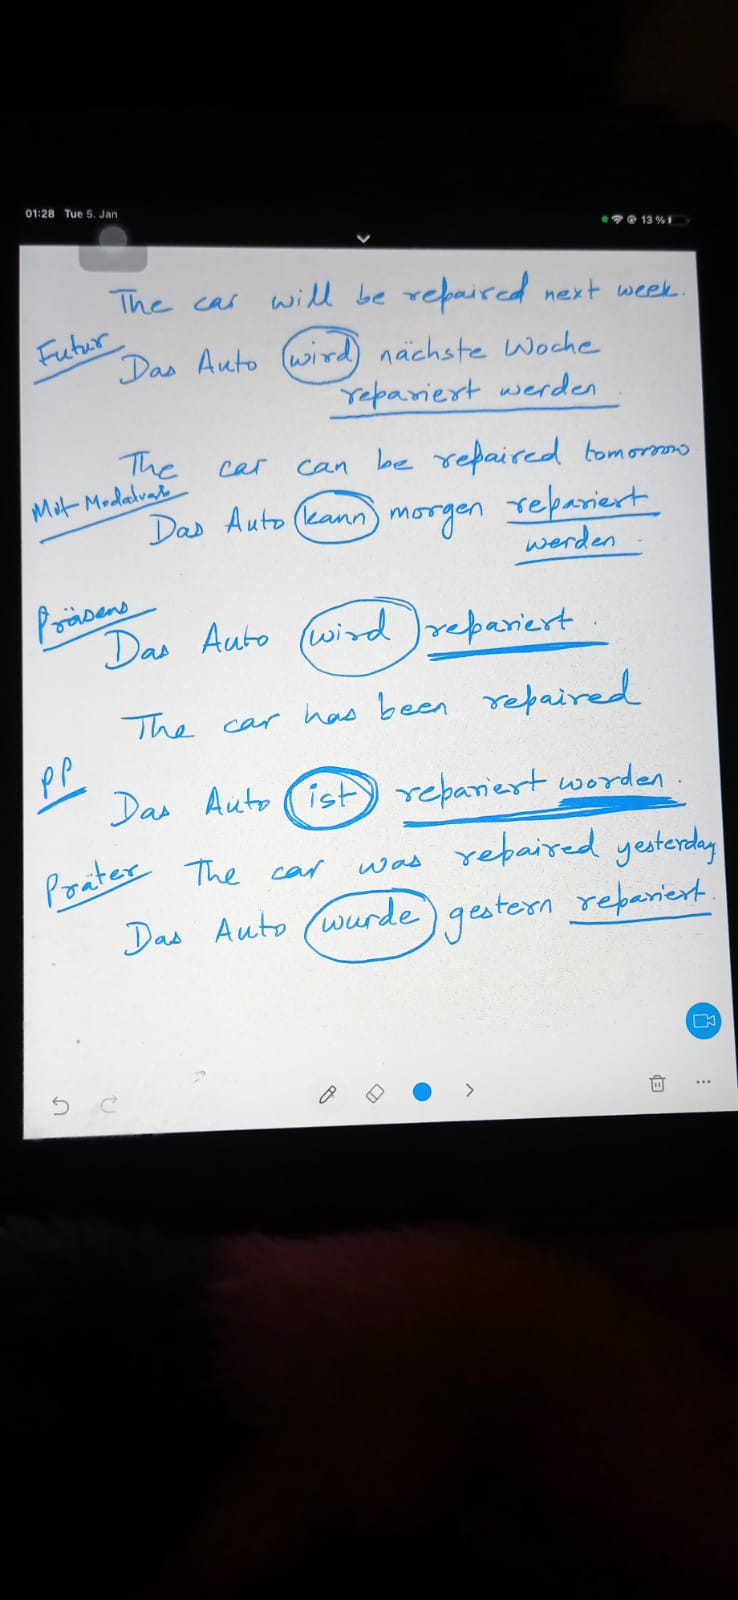 01:28 Tue 5. Jan
13 %
The car will be repaired next week.
Futur
Das Auto wird nächste Woche
repariert werden.
The car can be repaired tomorrow
Mit Modalverb
Das Auto kann morgen repariert
werden.
Präsens
Das Auto wird repariert.
The car has been repaired
PP
Das Auto ist repariert worden.
Präter The car was repaired yesterday
Das Auto wurde gestern repariert.